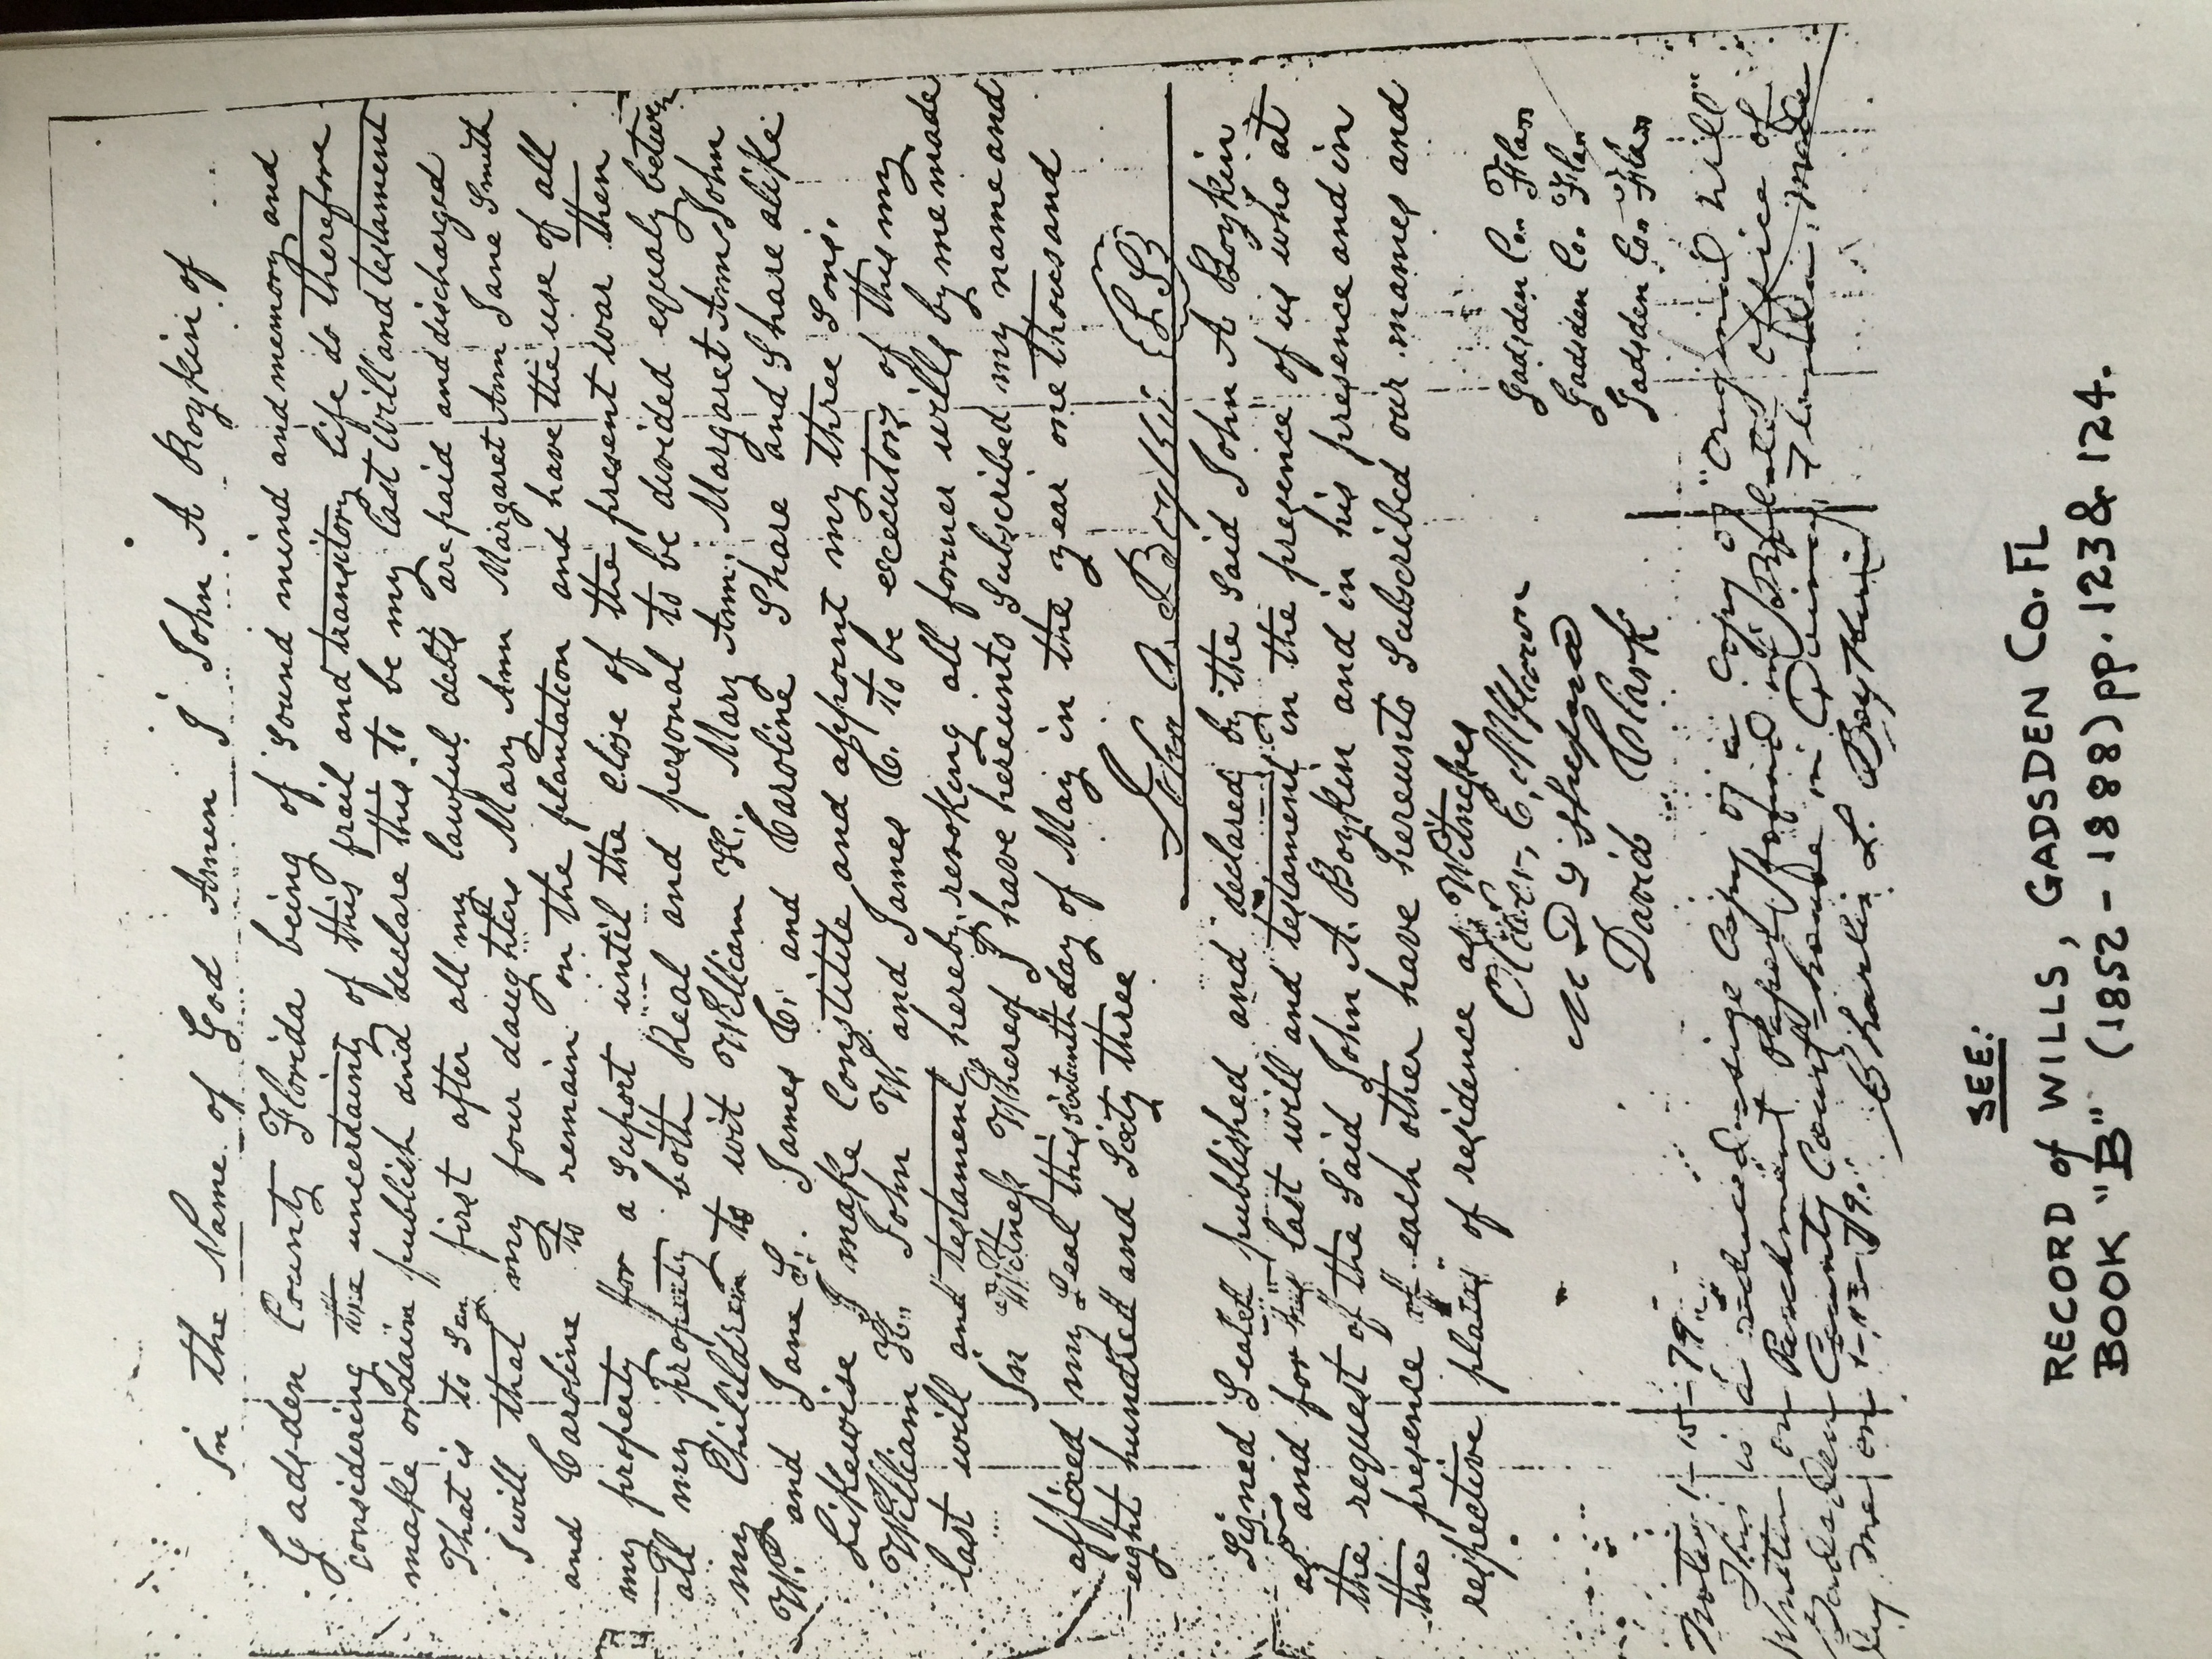 In the Name of God Amen I John A Boykin of
Gadsden County Florida being of Sound mind and memory and
considering the uncertainty of this frail and transitory life do therefore
make ordain publish and declare this to be my Last Will and testament
That is to Say first after all my lawful debts are paid and discharged
I will that my four daughters Mary Ann Margaret Ann Jane Smith
and Caroline to remain on the plantation and have the use of all
my property for a Suport until the close of the present war then
all my property both Real and personal to be divided equaly between
my Children to wit William H. Mary Ann, Margaret Ann John
W. and Jane S. James C. and Caroline Share and Share alike
Likewise I make Constitute and appoint my three Sons.
William H. John W. and James C. to be executors of this my
last will and testament hereby revoking all former wills by me made
In Witness Whereof I have hereunto Subscribed my name and
affixed my Seal this day of May in the year one thousand
eight hundred and Sixty three
John A. Boykin {L S}
Signed Sealed published and declared by the Said John A Boykin
as and for his last will and testament in the presence of us who at
the request of the Said John A. Boykin and in his presence and in
the presence of each other have hereunto Subscribed our names and
respective places of residence as Witnesses
Gadsden Co. Fla
M D Shepard Gadsden Co. Fla
David Clark Gadsden Co. Fla
Note: 1-15-79.
This is a reduced size copy of a copy of "Original Will"
written on Parchment Paper found in office of
Gadsden County Court-house in Quincy Florida, made
by me on 1-13-79. Charlie L. Boykin
SEE:
RECORD of WILLS, GADSDEN CO. FL
BOOK "B" (1852-1888) pp. 123 & 124.